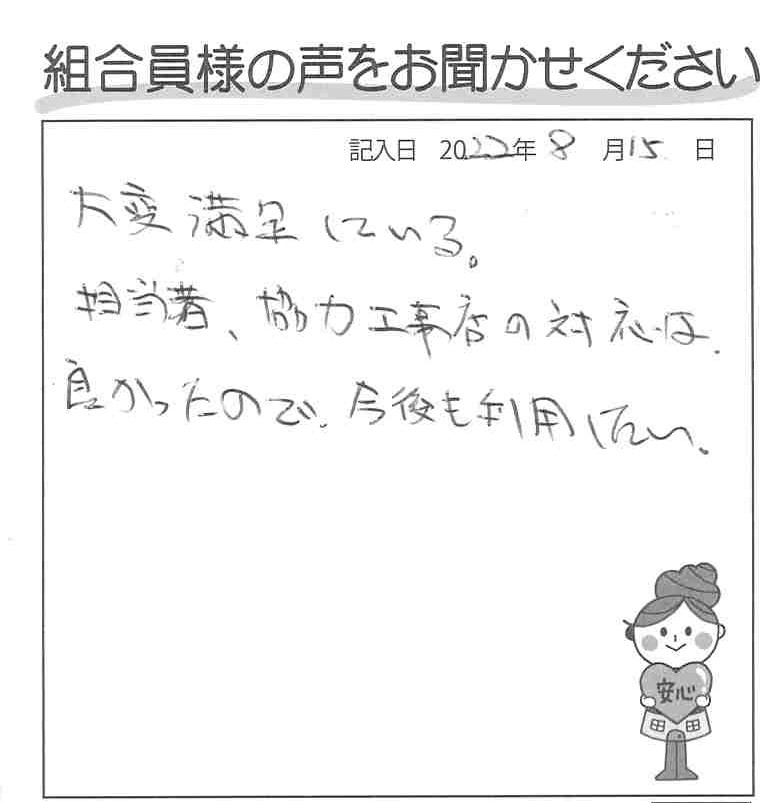 組合員様の声をお聞かせください
記入日 2022年 8 月15 日
大変満足している。
担当者、協力工事店の対応は、
良かったので、今後も利用したい。
安心